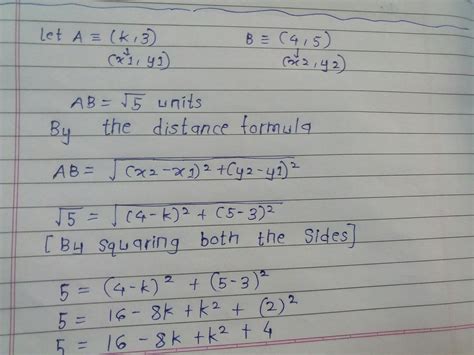 let A ≡ (k,3) B ≡ (4,5)
(x1, y1) (x2, y2)
AB = √5 units
By the distance formula
AB = √(x2-x1)² + (y2-y1)²
√5 = √(4-k)² + (5-3)²
[By squaring both the sides]
5 = (4-k)² + (5-3)²
5 = 16 - 8k + k² + (2)²
5 = 16 - 8k + k² + 4